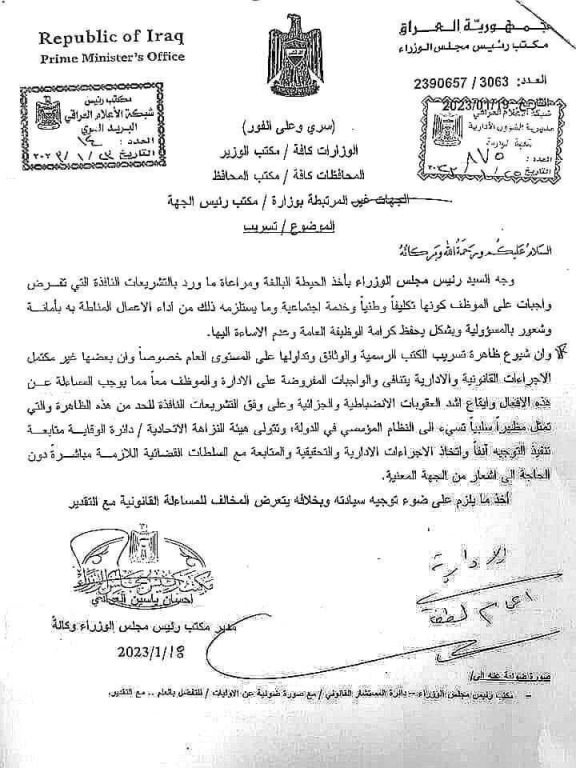 جمهورية العراق
مكتب رئيس مجلس الوزراء
Republic of Iraq
Prime Minister's Office
العدد: 3063 / 2390657
التاريخ: 2023/01/19
مكتب رئيس
شبكة الاعلام العراقي
البريد السري
العدد:
التاريخ
شبكة الاعلام العراقي
مديرية الشؤون الادارية
العدد: ٨٧٥
التاريخ
(سري وعلى الفور)
الوزارات كافة / مكتب الوزير
المحافظات كافة / مكتب المحافظ
الجهات غير المرتبطة بوزارة / مكتب رئيس الجهة
الموضوع / تسريب
السلام عليكم ورحمة الله وبركاته
وجه السيد رئيس مجلس الوزراء بأخذ الحيطة البالغة ومراعاة ما ورد بالتشريعات النافذة التي تفرض
واجبات على الموظف كونها تكليفاً وطنياً وخدمة اجتماعية وما يستلزمه ذلك من اداء الاعمال المناطة به بأمانة
وشعور بالمسؤولية وبشكل يحفظ كرامة الوظيفة العامة وعدم الاساءة اليها.
وان شيوع ظاهرة تسريب الكتب الرسمية والوثائق وتداولها على المستوى العام خصوصاً وان بعضها غير مكتمل
الاجراءات القانونية والادارية يتنافى والواجبات المفروضة على الادارة والموظف معاً مما يوجب المساءلة عن
هذه الافعال وايقاع اشد العقوبات الانضباطية والجزائية وعلى وفق التشريعات النافذة للحد من هذه الظاهرة والتي
تمثل مظهراً سلبياً تسيء الى النظام المؤسسي في الدولة؛ وتتولى هيئة النزاهة الاتحادية / دائرة الوقاية متابعة
تنفيذ التوجيه آنفاً واتخاذ الاجراءات الادارية والتحقيقية والمتابعة مع السلطات القضائية اللازمة مباشرةً دون
الحاجة الى اشعار من الجهة المعنية.
أخذ ما يلزم على ضوء توجيه سيادته وبخلافه يتعرض المخالف للمساءلة القانونية مع التقدير
مكتب رئيس مجلس الوزراء
احسان ياسين العوادي
مدير مكتب رئيس مجلس الوزراء وكالة
2023/1/18
الادارية
صورة ضوئية عنه الى/
- مكتب رئيس مجلس الوزراء – دائرة المستشار القانوني / مع صورة ضوئية عن الاوليات / للتفضل بالعلم .. مع التقدير.